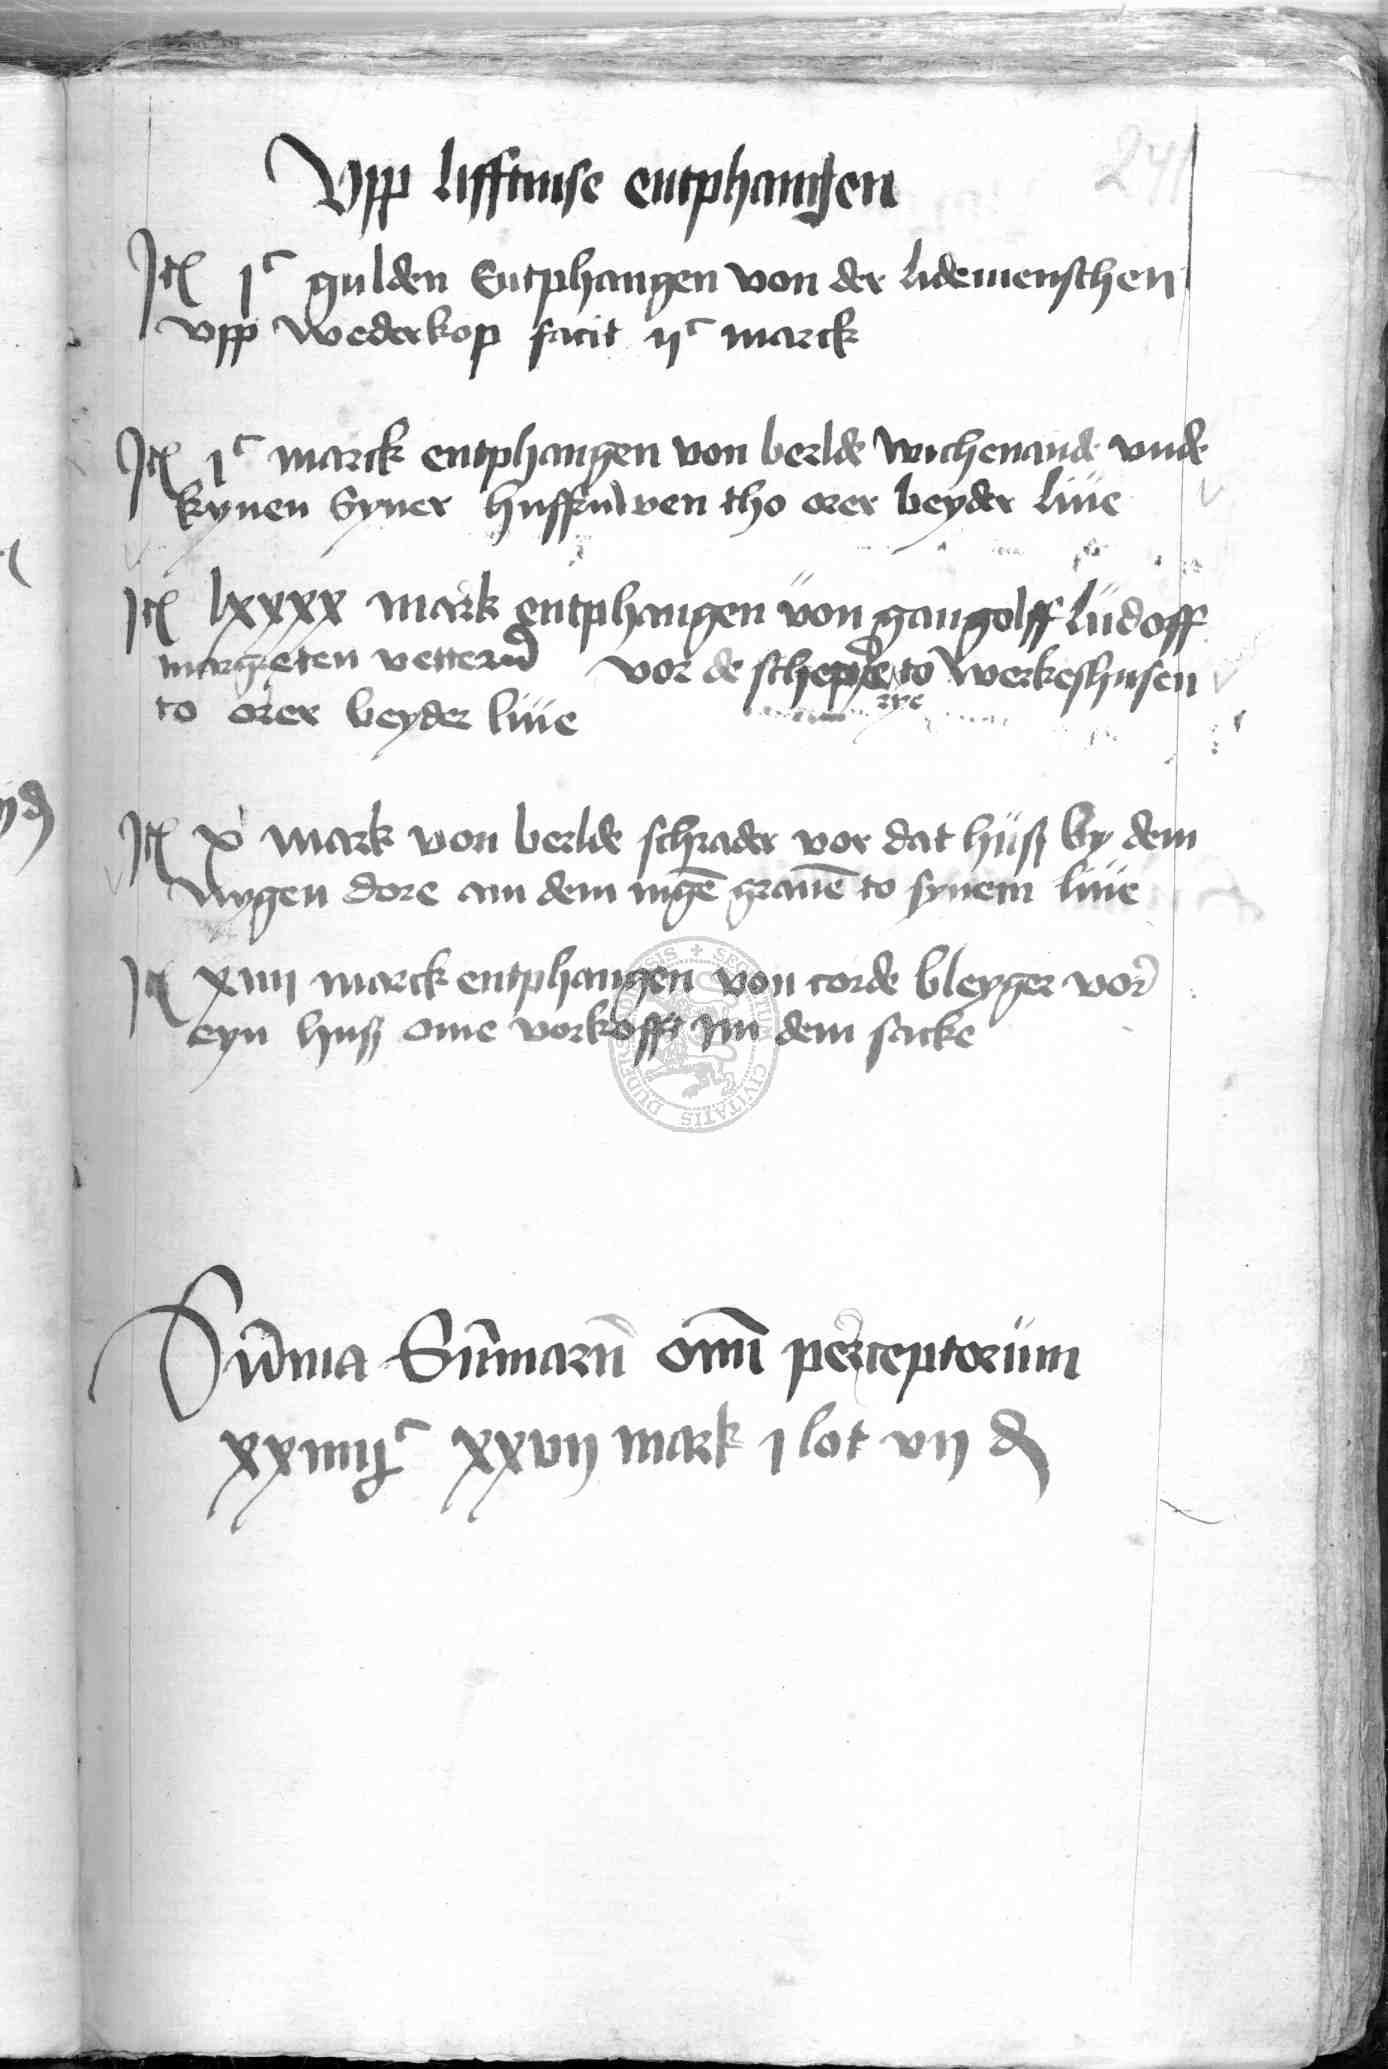 241
Vpp lifftinse entphangen
Itẽ jᶜ gulden Entphangen von der lidemenschen
vpp wederkop facit ijᶜ marck
Itẽ jᶜ marck entphangen von berlde wichenande vnde
kynen Syner husfruwen tho orer beyder liue
Itẽ lxxxx mark entphangen von gangolff ludolff
margreten vettern vor de schepe to werkeshusen
rye
to orer beyder liue
Itẽ x mark von berlde schrader vor dat huß by dem
nygen dore an dem nigẽ grauẽ to synem liue
Itẽ xiiij marck entphangen von corde bleyger vor
eyn huß ome vorkofft im dem sacke
SECRETUM CIVITATIS DUDERSTADENSIS
Sũma Sũmarũ omĩ perceptorum
xxiiijᶜ xxvij mark j lot vij ₰